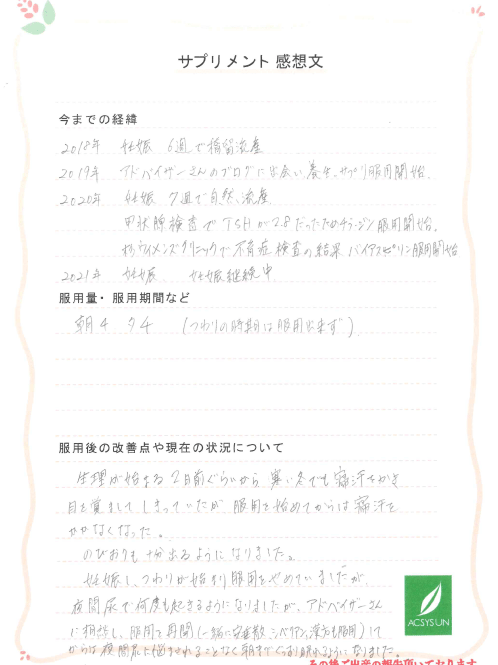 サプリメント 感想文
今までの経緯
2018年 妊娠 6週で稽留流産
2019年 アドバイザーさんのブログに出会い、養生、サプリ服用開始、
2020年 妊娠 7週で自然流産
甲状腺検査でTSHが2.8だったためチラージン服用開始。
杉ウイメンズクリニックで不育症検査の結果 バイアスピリン服用開始
2021年 妊娠、 妊娠継続中
服用量・服用期間など
朝4 夕4 (つわりの時期は服用出来ず)
服用後の改善点や現在の状況について
生理が始まる2日前ぐらいから 寒い冬でも寝汗をかき
目を覚まして しまっていたが、服用を始めてからは寝汗を
かかなくなった。
のびおりも十分出るようになりました。
妊娠し、つわりが始まり服用をやめていましたが、
夜間尿で何度も起きるようになりましたが、アドバイザーさん
に相談し、服用を再開(一緒に安産散、シベリアン、漢方も服用)して
からは夜間尿に悩まされることなく朝までぐっすり眠れるようになりました。
ACSYSUN
その後ご出産の報告頂いております